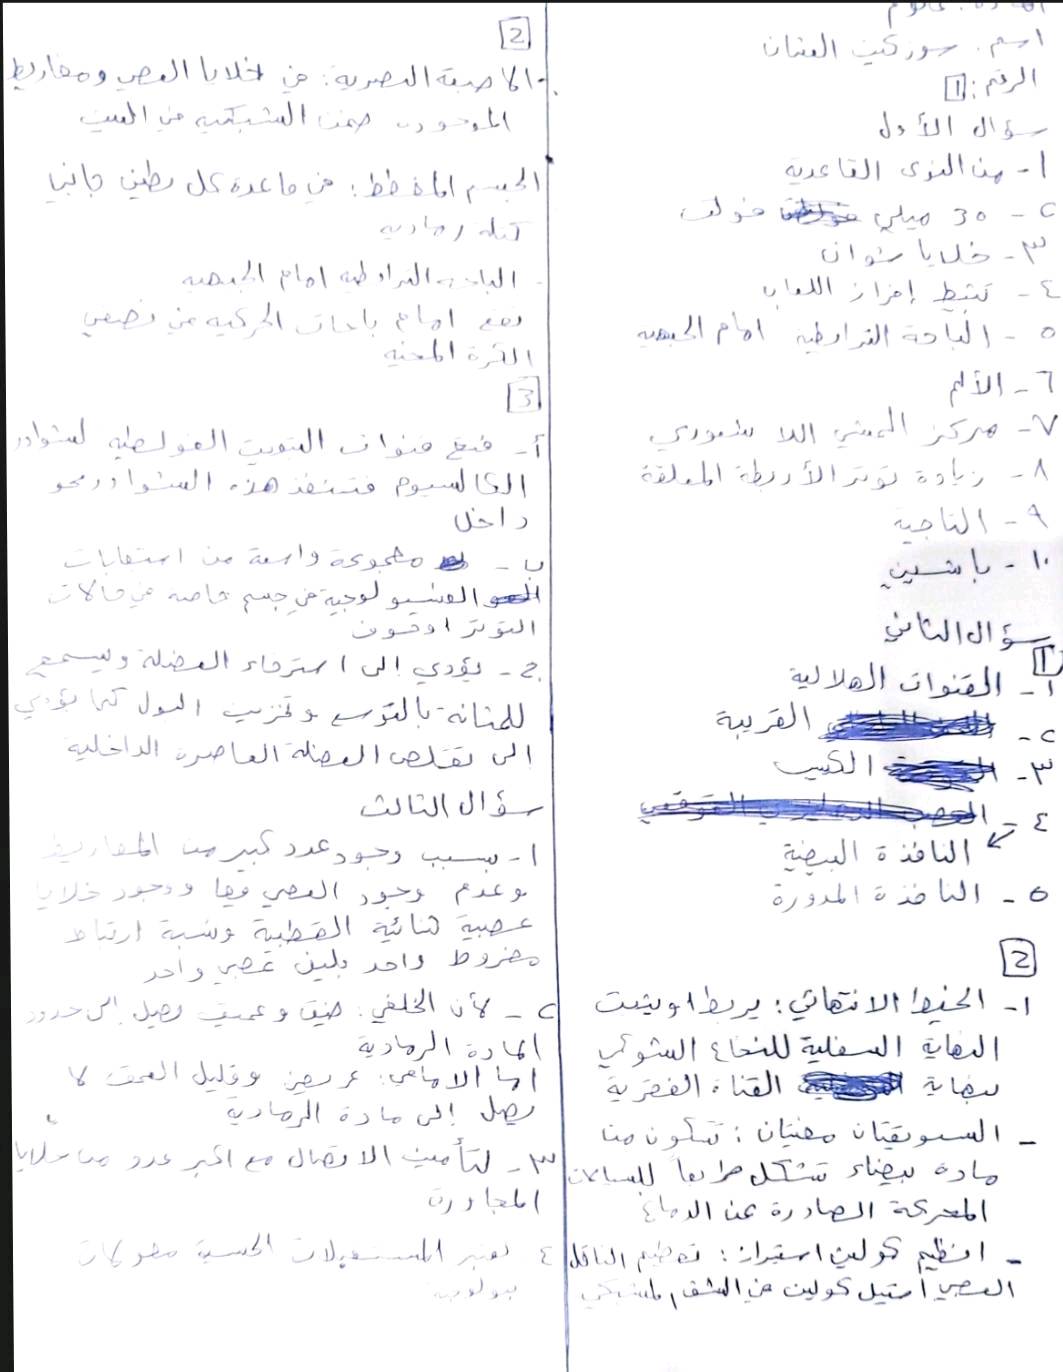 المادة: علوم
اسم:
الرقم: 1
سؤال الأول
1- من النوى القاعدية
2- 30 ميلي فولت
3- خلايا شوان
4- تثبط إفراز اللعاب
5- الباحة الترابطية امام الجبهية
6- الألم
7- مركز المشي اللا شعوري
8- زيادة توتر الأربطة المعلقة
9- التاجية
10- باشيني
سؤال الثاني
1
1- القنوات الهلالية
2- القريبة
3- الكييس
4-
النافذة البيضية
5- النافذة المدورة
2
1- الخيط الانتهائي: يربط او يثبت
النهاية السفلية للنخاع الشوكي
بنهاية القناة الفقرية
- السويقتان مخيتان: تتكون من
مادة بيضاء تشكل طريقاً للسيالات
المحركة الصادرة عن الدماغ
- انظيم كولين استيراز: تحطيم الناقل
العصبي أستيل كولين في الشق المشبكي
2
- الاصبغة البصرية: في خلايا العصي ومخاريط
الموجودة ضمن الشبكية في العين
الجسم المخطط: في قاعدة كل بطين جانبي
كتلة رمادية
- الباحة الترابطية امام الجبهية
تقع امام باحات الحركية في نصفي
الكرة المخية
3
أ- فتح قنوات التبويب الفولطية لشوارد
الكالسيوم فتنفذ هذه الشوارد نحو
داخل
ب- مجموعة واسعة من استجابات
الفيسيولوجية في جسم خاصة في حالات
التوتر او خوف
ج- يؤدي إلى استرخاء العضلة ويسمح
للمثانة بالتوسع وتخزين البول كما يؤدي
الى تقلص العضلة العاصرة الداخلية
سؤال الثالث
1- بسبب وجود عدد كبير من المخاريط
وعدم وجود العصي فيها ووجود خلايا
عصبية ثنائية القطبية ونسبة ارتباط
مخروط واحد بليف عصبي واحد
2- لأن الخلفي: ضيق وعميق يصل إلى حدود
المادة الرمادية
اما الامامي: عريض وقليل العمق لا
يصل إلى مادة الرمادية
3- لتأمين الاتصال مع اكبر عدد من خلايا
المجاورة
4- تعتبر المستقبلات الحسية محولات
بيولوجية